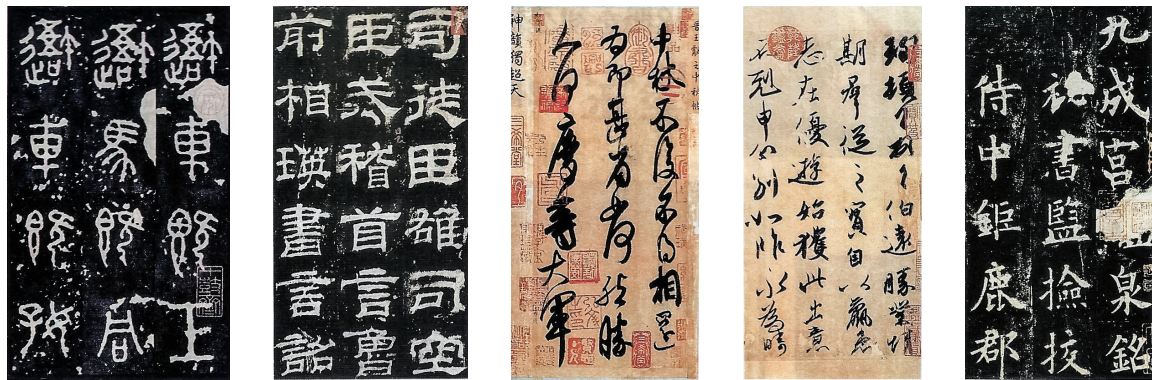 吾車既工
吾馬既同
吾車既好
司徒臣雄司空
臣戒稽首言魯
前相瑛書言詔
晉王獻之中秋帖
中秋不復不得相還
為即甚省如何然勝
人何慶等大軍
神韻獨超天
珣頓首頓首伯遠勝業情
期群從之寶自以羸患
志在優遊始獲此出意
不剋申分別如昨永為疇
九成宮泉銘
秘書監檢挍
侍中鉅鹿郡